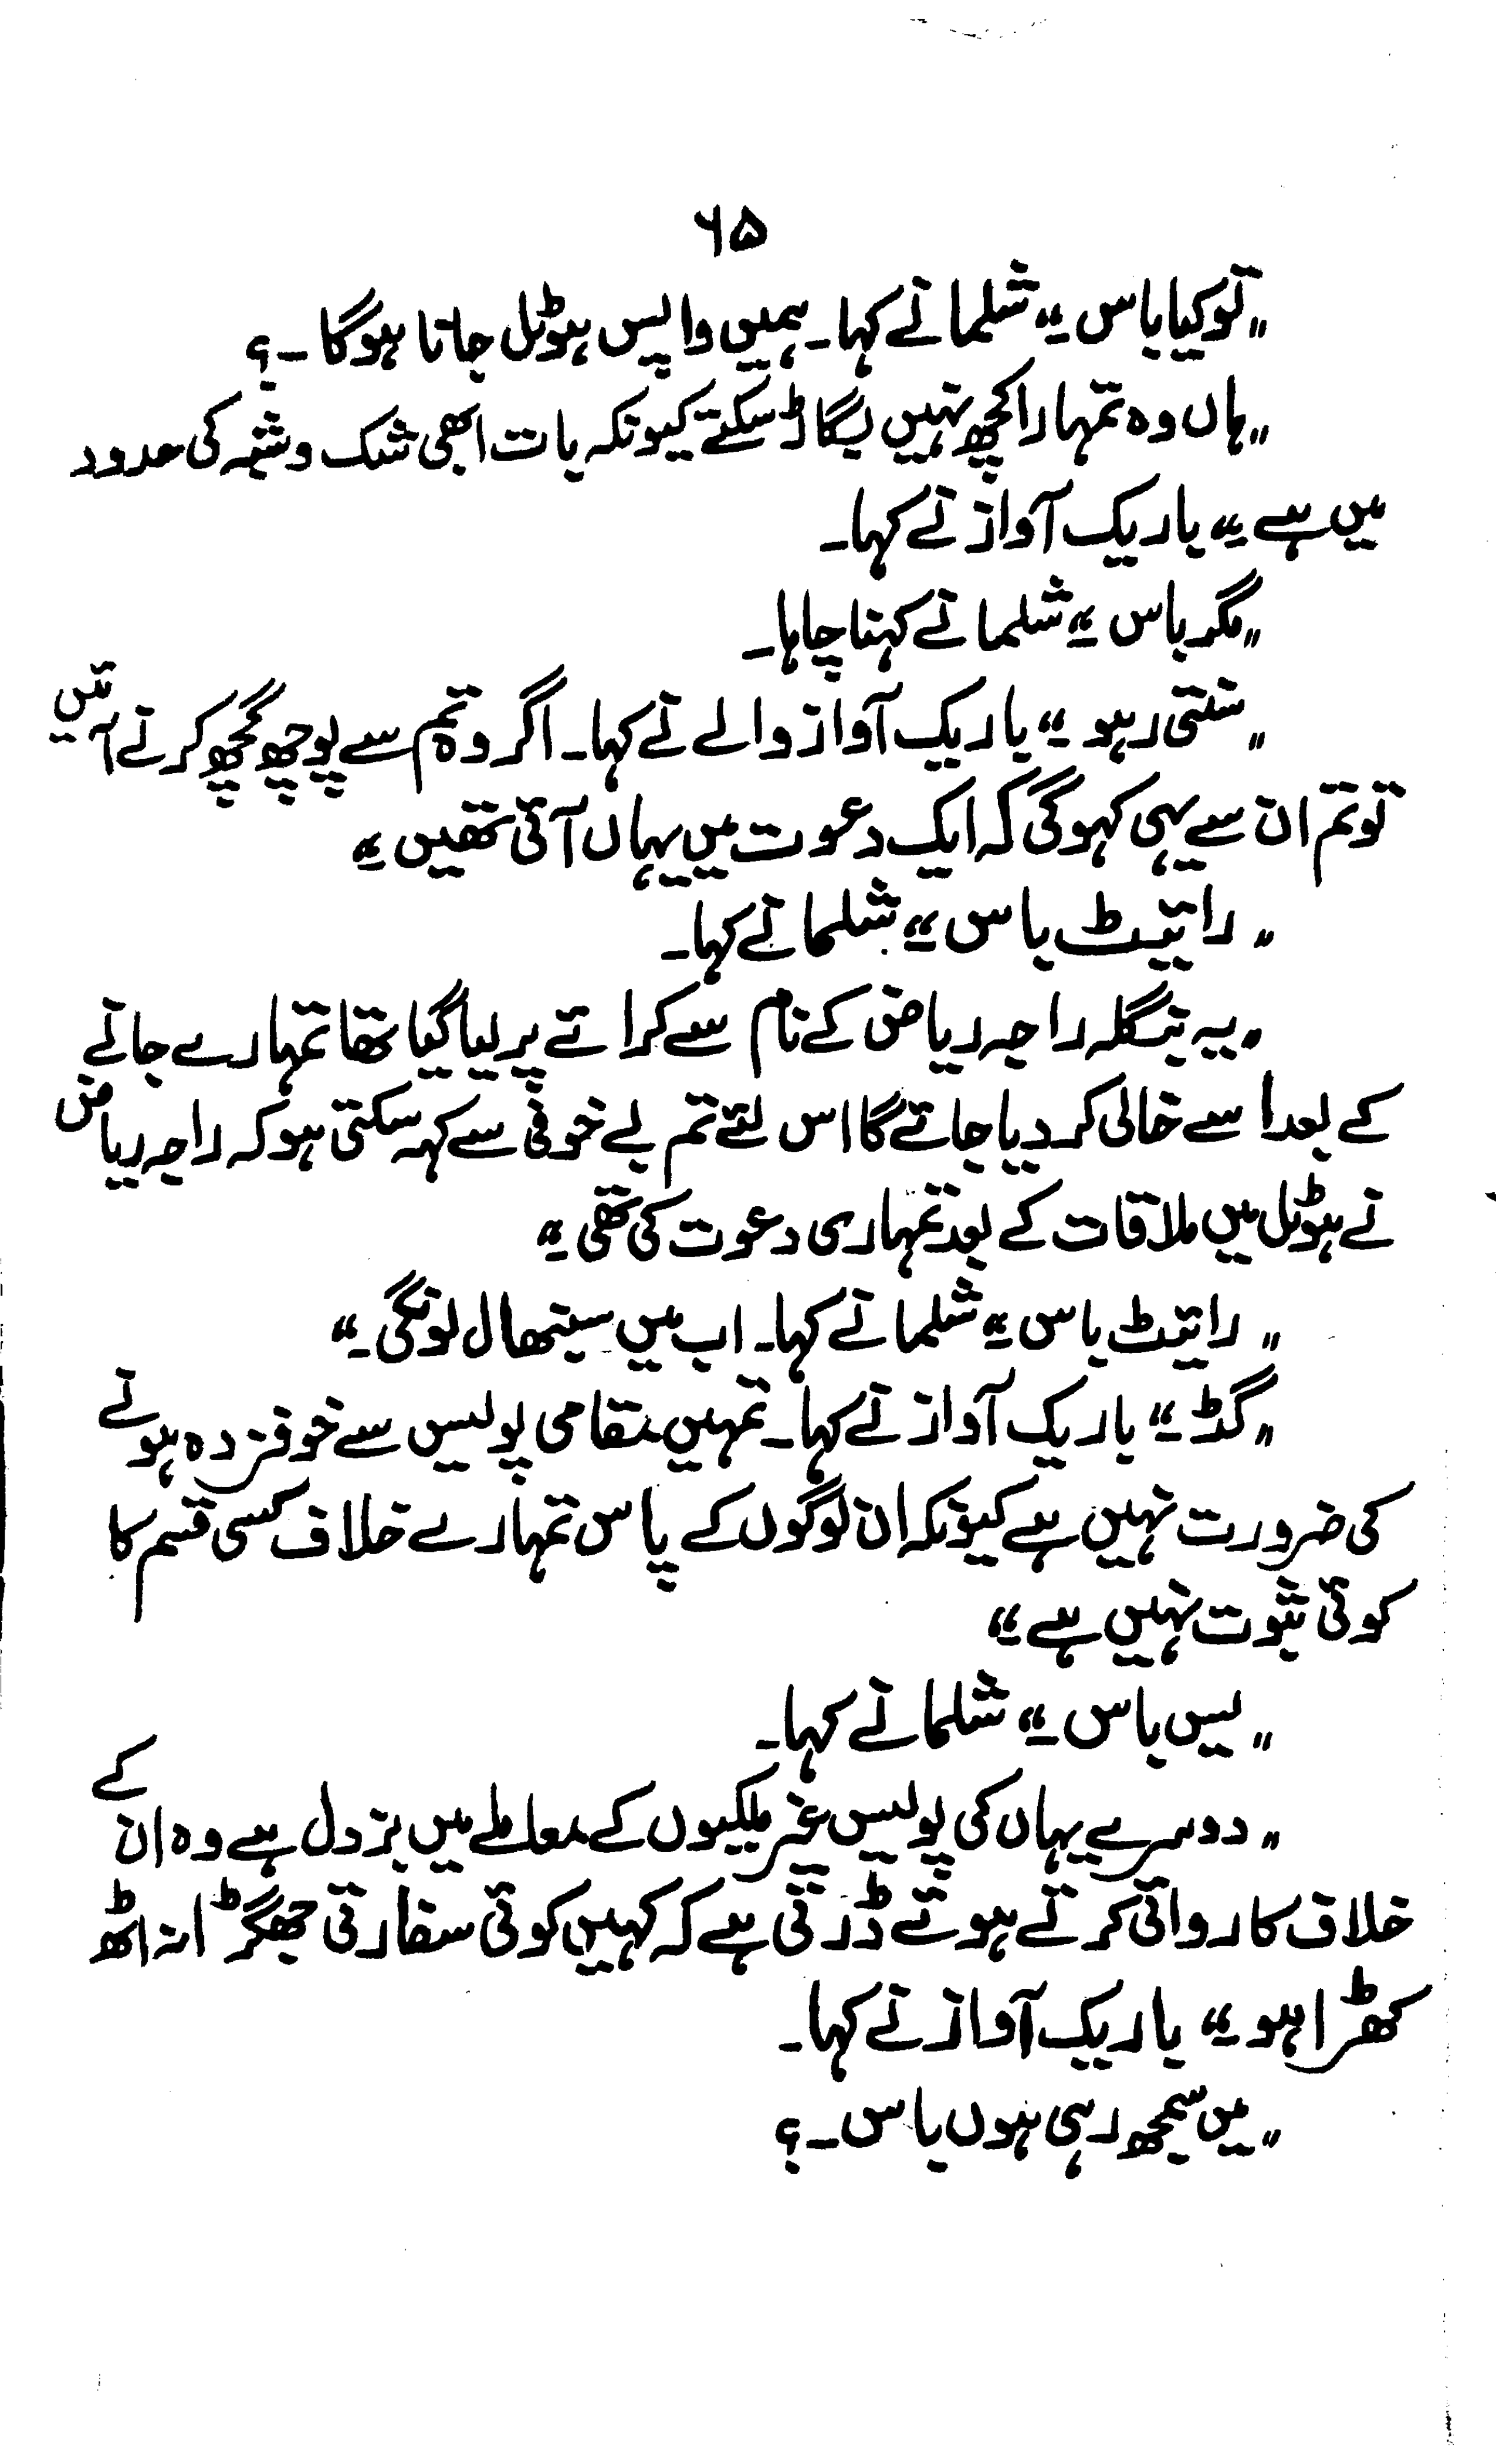 ۶۵
"تو کیا باس۔" شلمانے کہا۔ ہمیں واپس ہوٹل جانا ہوگا۔؟
"ہاں وہ تمہارا کچھ نہیں بگاڑ سکتے کیونکہ بات ابھی شک و شبہ کی حدود
میں ہے۔" باریک آواز نے کہا۔
"مگر باس۔" شلمانے کہنا چاہا۔
"سنتی رہو۔" باریک آواز والے نے کہا۔ اگر وہ تم سے پوچھ گچھ کرنے آئیں
تو تم ان سے یہی کہو گی کہ ایک دعوت میں یہاں آئی تھیں۔"
"رائیٹ باس۔" شلمانے کہا۔
"یہ بنگلہ راجہ ریاض کے نام سے کرائے پر لیا گیا تھا تمہارے جانے
کے بعد اسے خالی کر دیا جائے گا اس لئے تم بے خوفی سے کہہ سکتی ہو کہ راجہ ریاض
نے ہوٹل میں ملاقات کے بعد تمہاری دعوت کی تھی۔"
"رائیٹ باس۔" شلمانے کہا۔ اب میں سنبھال لونگی۔"
"گڈ۔" باریک آواز نے کہا۔ تمہیں مقامی پولیس سے خوفزدہ ہونے
کی ضرورت نہیں ہے کیونکہ ان لوگوں کے پاس تمہارے خلاف کسی قسم کا
کوئی ثبوت نہیں ہے۔"
"یس باس۔" شلمانے کہا۔
"دوسرے یہاں کی پولیس غیر ملکیوں کے معاملے میں بزدل ہے وہ ان کے
خلاف کاروائی کرتے ہوئے ڈرتی ہے کہ کہیں کوئی سفارتی جھگڑا نہ اٹھ
کھڑا ہو۔" باریک آواز نے کہا۔
"میں سمجھ رہی ہوں باس۔؟